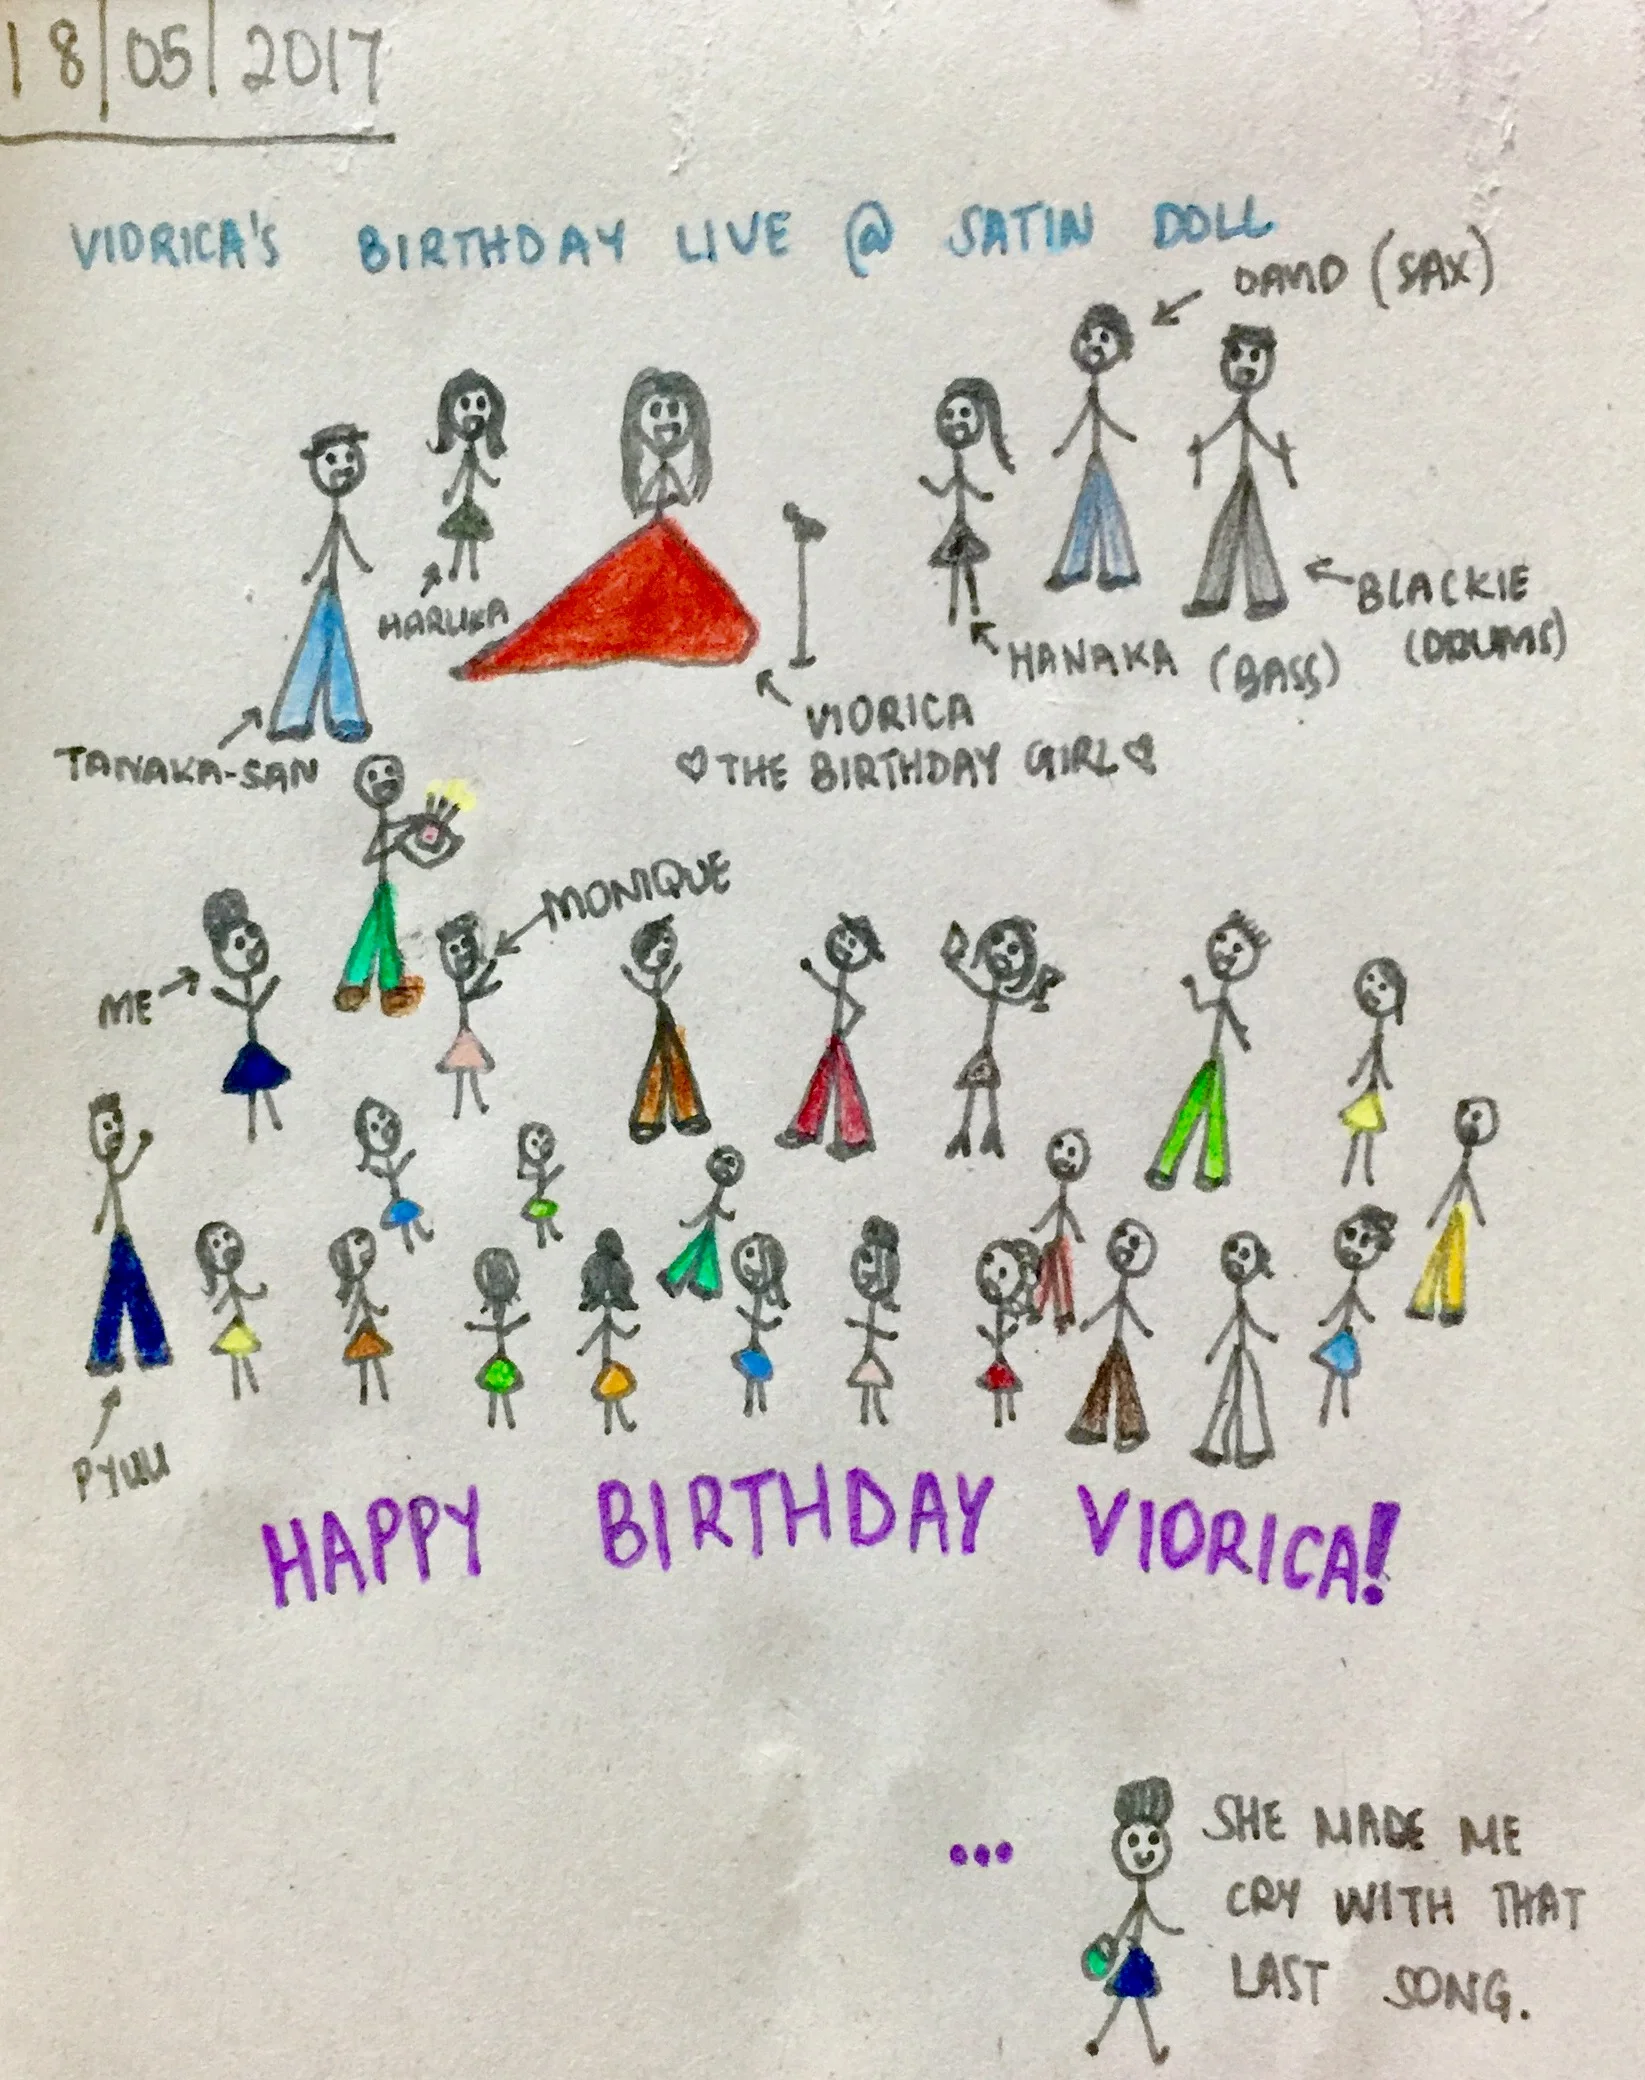 18/05/2017
VIORICA'S BIRTHDAY LIVE @ SATIN DOLL
DAVID (SAX)
HARUKA
BLACKIE
(DRUMS)
HANAKA (BASS)
VIORICA
♡ THE BIRTHDAY GIRL ♡
TANAKA-SAN
MONIQUE
ME
PYUU
HAPPY BIRTHDAY VIORICA!
...
SHE MADE ME
CRY WITH THAT
LAST SONG.